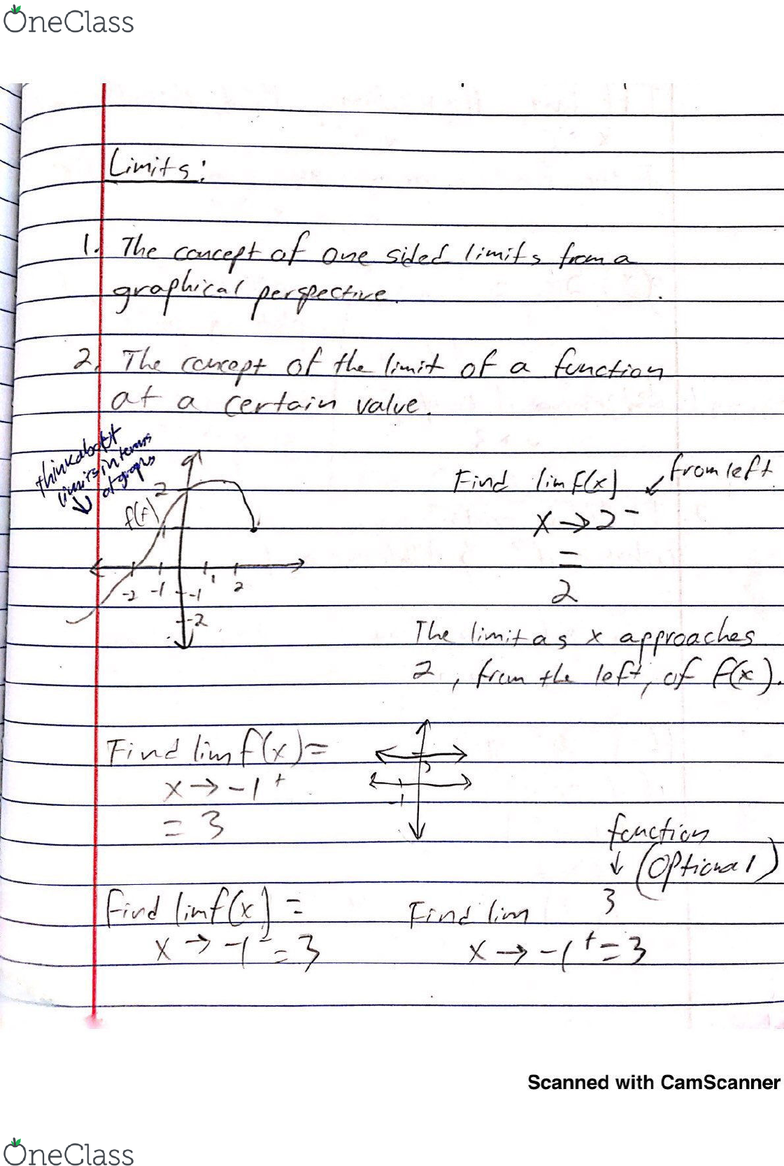 OneClass
Limits:
1. The concept of one sided limits from a
graphical perspective.
2. The concept of the limit of a function
at a certain value.
think about
limits in terms
of graphs
2
f(f)
1
-2 -1 -1 1 2
-2
Find lim f(x) from left
x → 2⁻
=
2
The limit as x approaches
2, from the left, of f(x).
Find lim f(x) =
x → -1⁺
= 3
3
-1
function
(optional)
3
Find lim f(x) =
x → -1⁻ = 3
Find lim
x → -1⁺ = 3
Scanned with CamScanner
OneClass